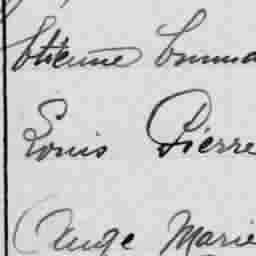 Etienne
Louis Pierre
Ange Marie